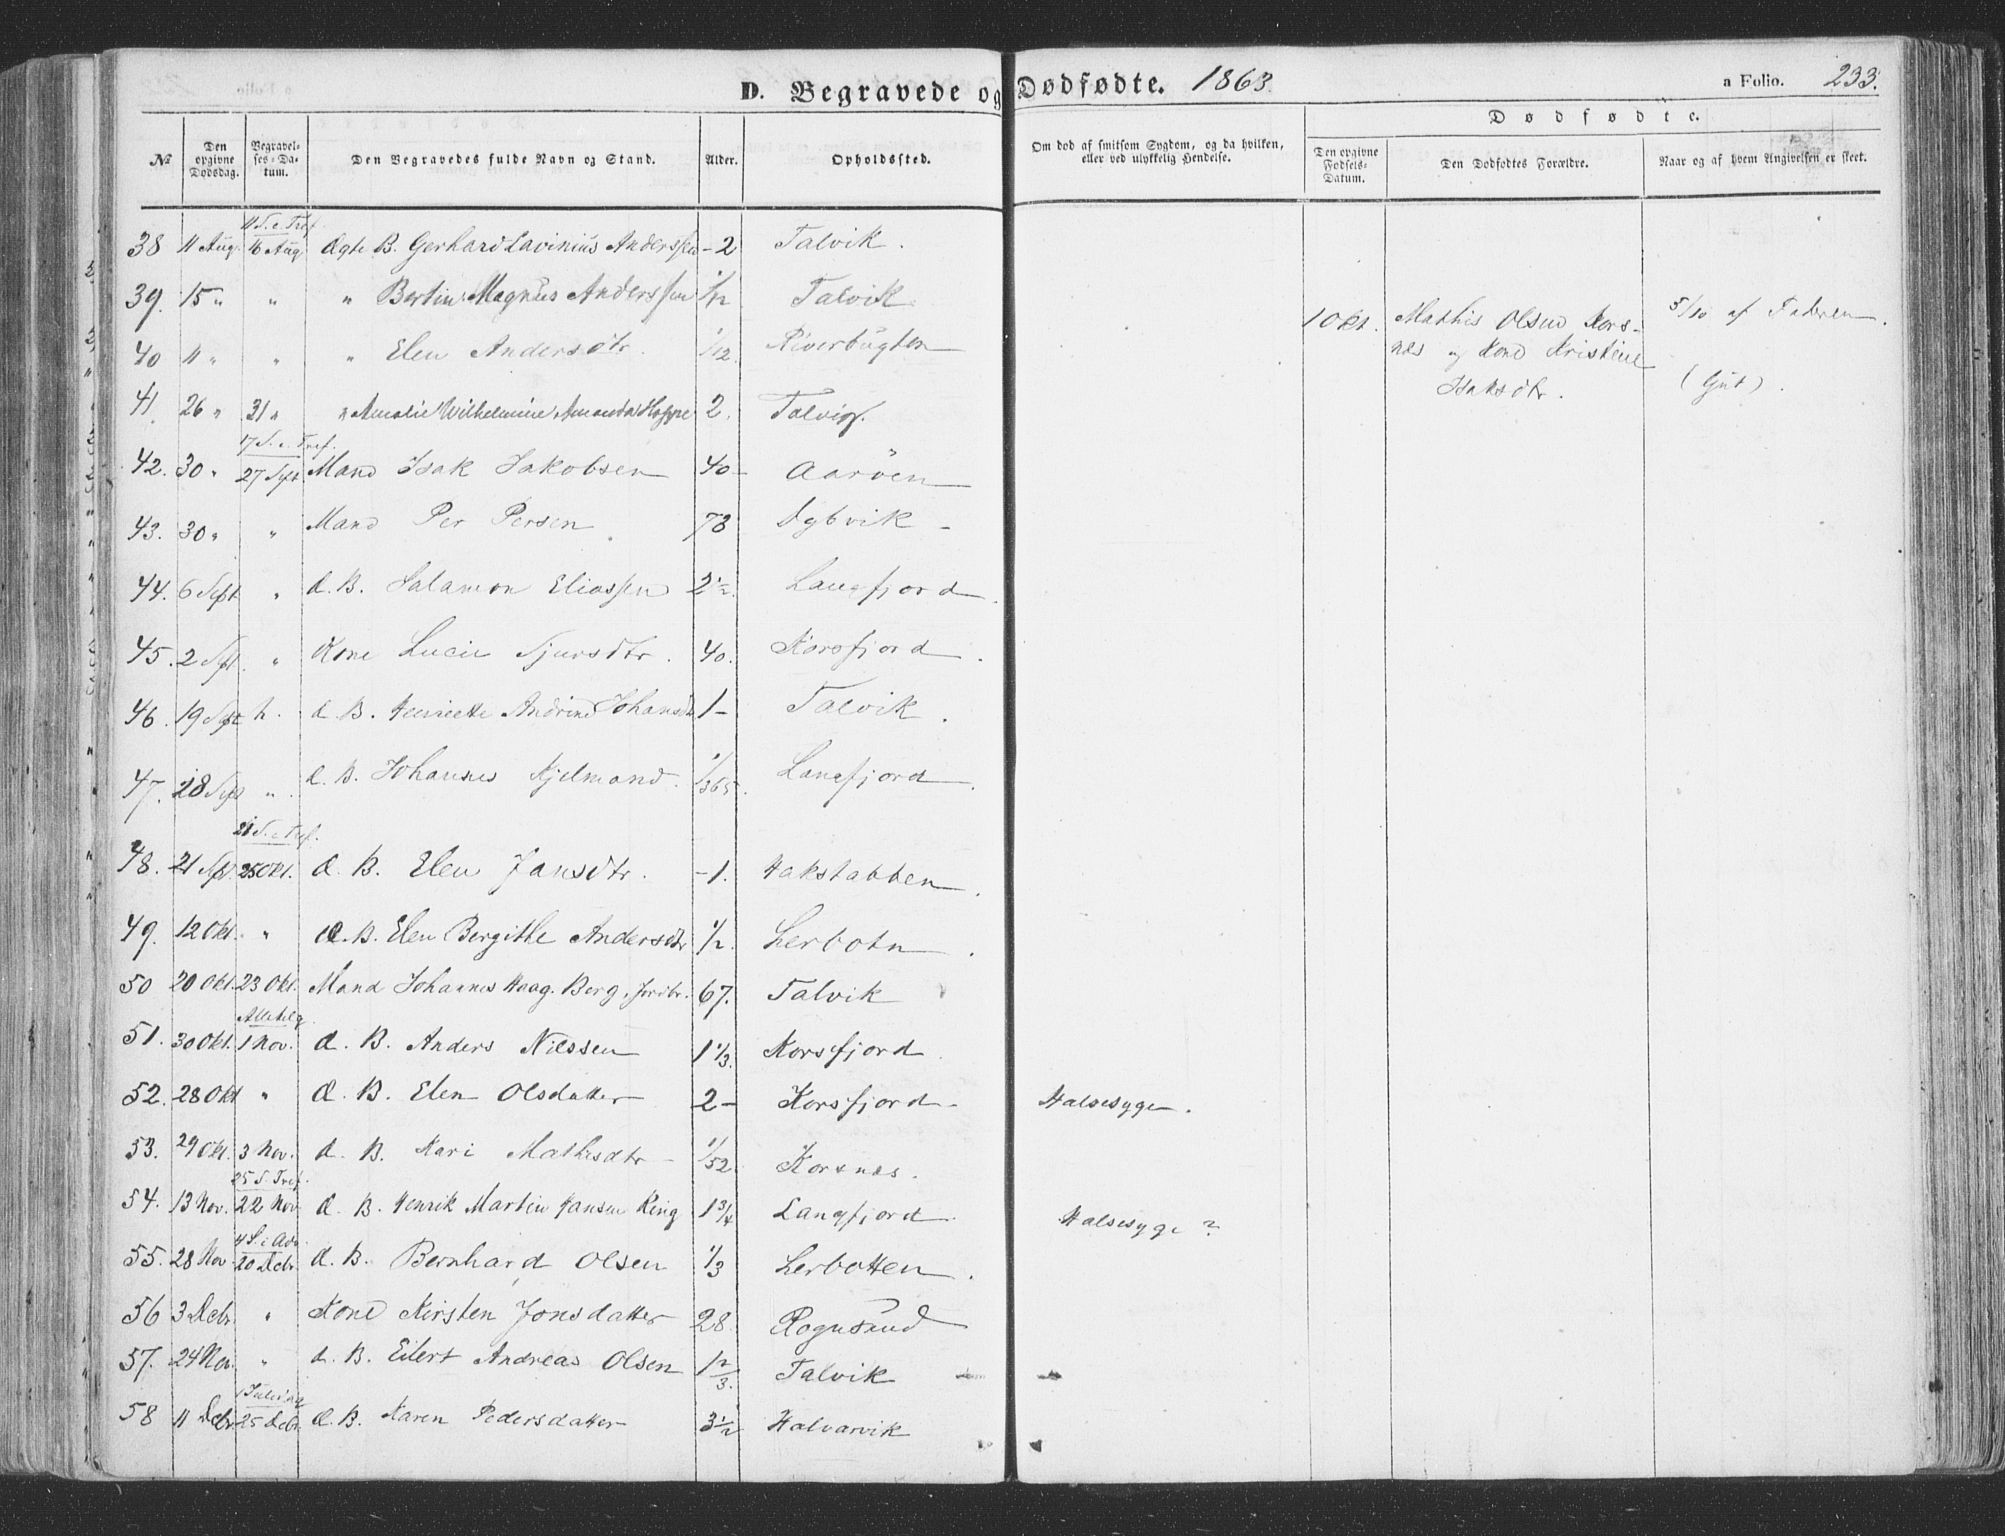 D. Begravede og Dødfødte. 1863. a Folio. 233.
Dødfødte.
No
Den opgivne Dødsdag.
Begravelses-Datum.
Den Begravedes fulde Navn og Stand.
Alder.
Opholdssted.
Om død af smitsom Sygdom, og da hvilken, eller ved ulykkelig Hendelse.
Den opgivne Fødsels-Datum.
Den Dødfødtes Forældre.
Naar og af hvem Angivelsen er skeet.
11 S. e. Tref.
38 11 Aug. 16 Aug Ægte B. Gerhard Lavinius Anderssen - 2 Talvik.
39. 15 " " " Bertin Magnus Anderssen 1/12 Talvik
10 Okt. Mathis Olsen Kors- 5/10 af Faderen.
40 11 " " " Elen Andersdtr. 1/12. Riverbugten
næs og Kone Kristine
Isaksdtr. (Gut).
41. 26 " 31 " " Amalie Wilhelmine Amanda Hoppe 2. Talvig.
17 S. e. Tref.
42. 30 " 27 Sept Mand Isak Jakobsen 40 - Aarøen
43. 30 " " Mand Per Persen 78 Dybvik -
44. 6 Sept " Æ. B. Salamon Eliassen 2 1/2. Langfjord.
45. 2 Spt. " Kone Lucie Sjursdtr. 40. Korsfjord.
46. 19 Sept " Æ. B. Henriette Andrine Johansdtr 1 - Talvik.
47. 18 Sept " Æ. B. Johannes Kjelmand. 1/365. Langfjord.
21 S. e. Tref.
48. 21 Spt. 25 Okt. Æ. B. Elen Jansdtr. - 1. Hakstabben.
49. 12 Okt. " Æ. B. Elen Bergithe Andersdtr 1/2. Lerbotn.
50 20 Okt. 23 Okt. Mand Johannes Haag. Berg, Jordbr. 67. Talvik
Allehelg.
51. 30 Okt. 1 Nov. Æ. B. Anders Nilssen 1 1/3. Korsfjord.
52. 28 Okt " Æ. B. Elen Olsdatter 2 - Korsfjord - Halsesyge.
53. 29 Okt. 3 Nov. Æ. B. Kari Mathisdtr - 1/52. Korsnæs.
25 S. Tref.
54. 13 Nov. 22 Nov Æ. B. Henrik Martin Hansen Ring 1 3/4 Langfjord. Halsesyge?
4 S. i Adv.
55. 28 Nov 20 Debr Æ. B. Bernhard Olsen 1/3 Lerbotten.
56 3 Debr " Kone Kirsten Jonsdatter 28. Rognsund
57. 24 Nov. " Æ. B. Eilert Andreas Olsen 1 2/3. Talvik
Juledag
58 11 Debr 25 Debr. Æ. B. Karen Pedersdatter 3 1/2 Halvarvik